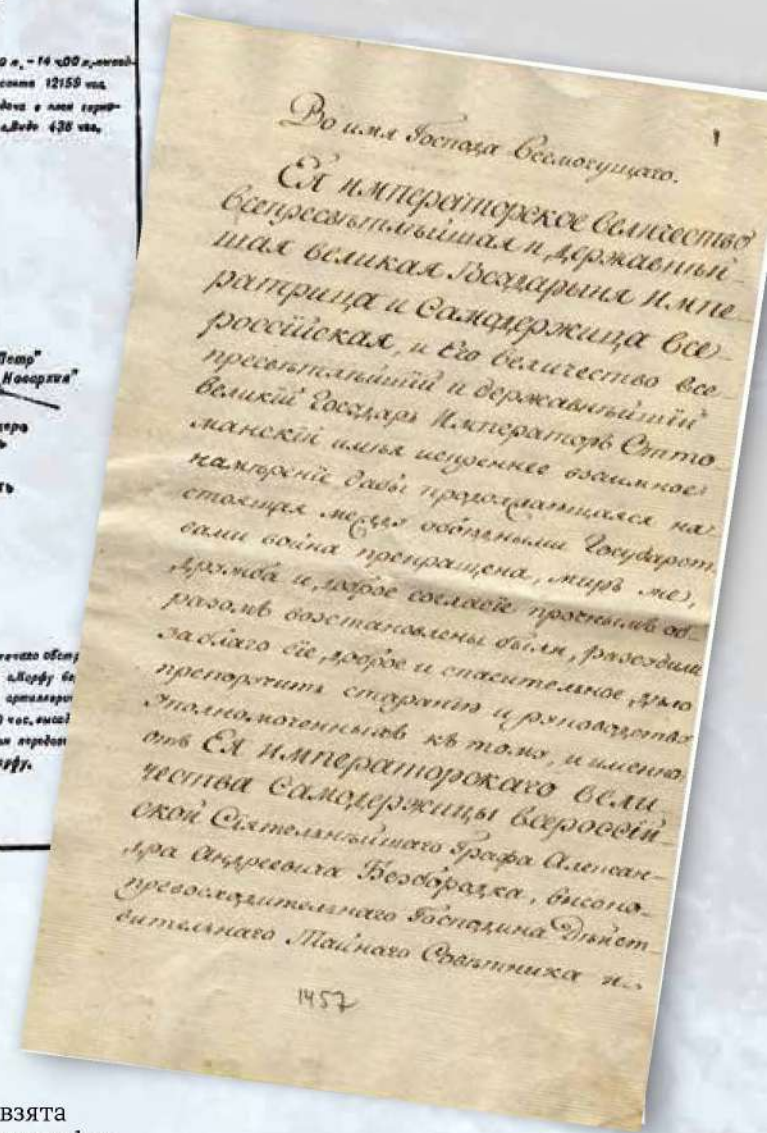 – 14 ч.00 м.
12159
436 час.
Петр"
взята
Во имя Господа Всемогущаго.
1
Ея императорское величество
всепресвѣтлѣйшая и державнѣй-
шая великая Государыня импе-
ратрица и Самодержица все-
россійская, и Его величество все-
пресвѣтлѣйшій и державнѣйшій
великій Государь Императоръ Отто-
манскій имѣя искреннее взаимное
намѣреніе дабы продолжающаяся на-
стоящая между обоюдными Государст-
вами война прекращена, миръ же,
дружба и доброе согласіе прочнымъ об-
разомъ возстановлены были, разсудили
за благо сіе доброе и спасительное дѣло
препоручить старанію и руководству
уполномоченныхъ къ тому, и именно
отъ Ея императорскаго вели-
чества Самодержицы всероссій-
ской Сіятельнѣйшаго Графа Алексан-
дра Андреевича Безбородка, высоко-
превосходительнаго Господина Дѣйст-
вительнаго Тайнаго Совѣтника
1457